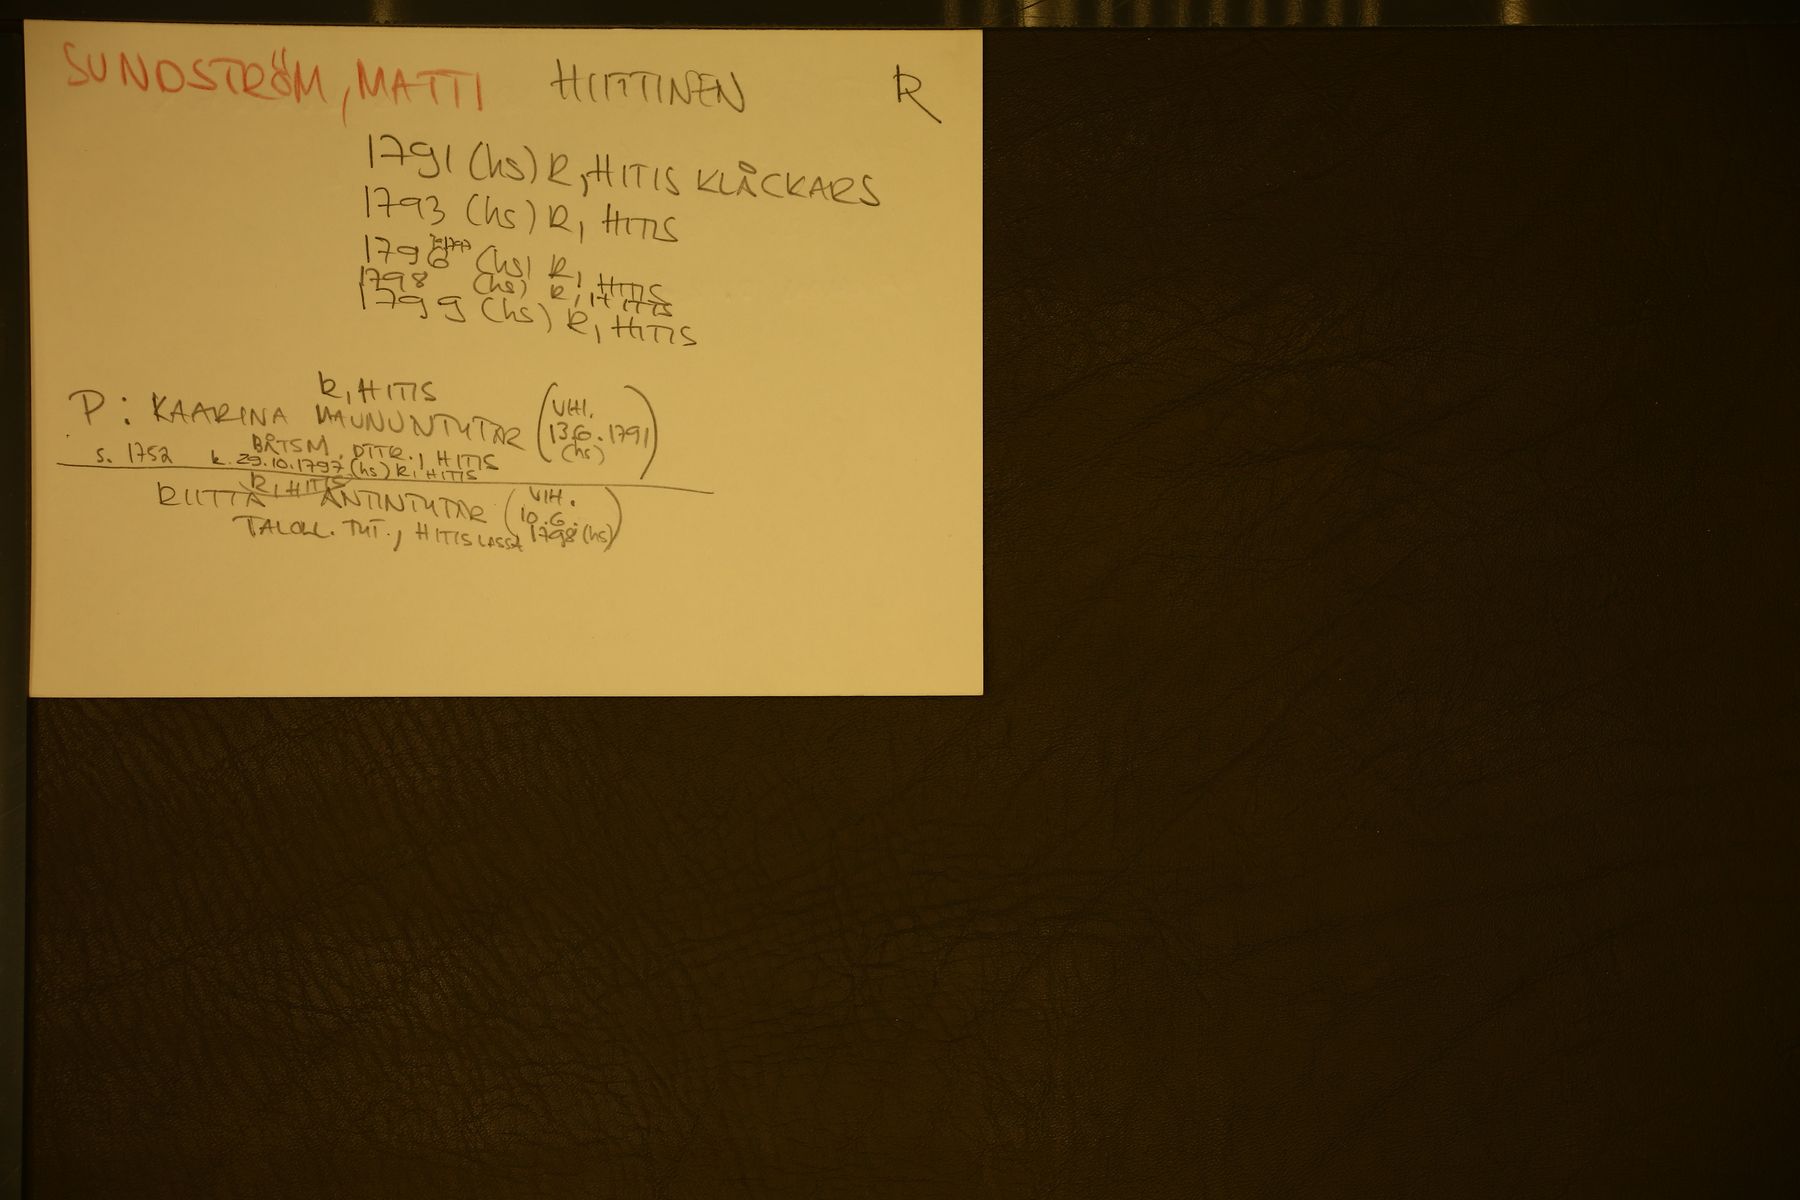 SUNDSTRÖM, MATTI HIITTINEN R
1791 (hs) R, HITIS KLÅCKARS
1793 (hs) R, HITIS
1796 (hs) R, HITIS
1798 (hs) R, HITIS
1799 (hs) R, HITIS
R, HITIS
P: KAARINA MAUNUNTYTÄR (VIHI. 13.6.1791 (hs))
BÅTSM. DTTR., HITIS
s. 1752 k. 29.10.1797 (hs) R, HITIS
R, HITIS
RIITTA ANTINTYTÄR (VIH. 10.6. 1798 (hs))
TALOLL. TYT., HITIS LASSA